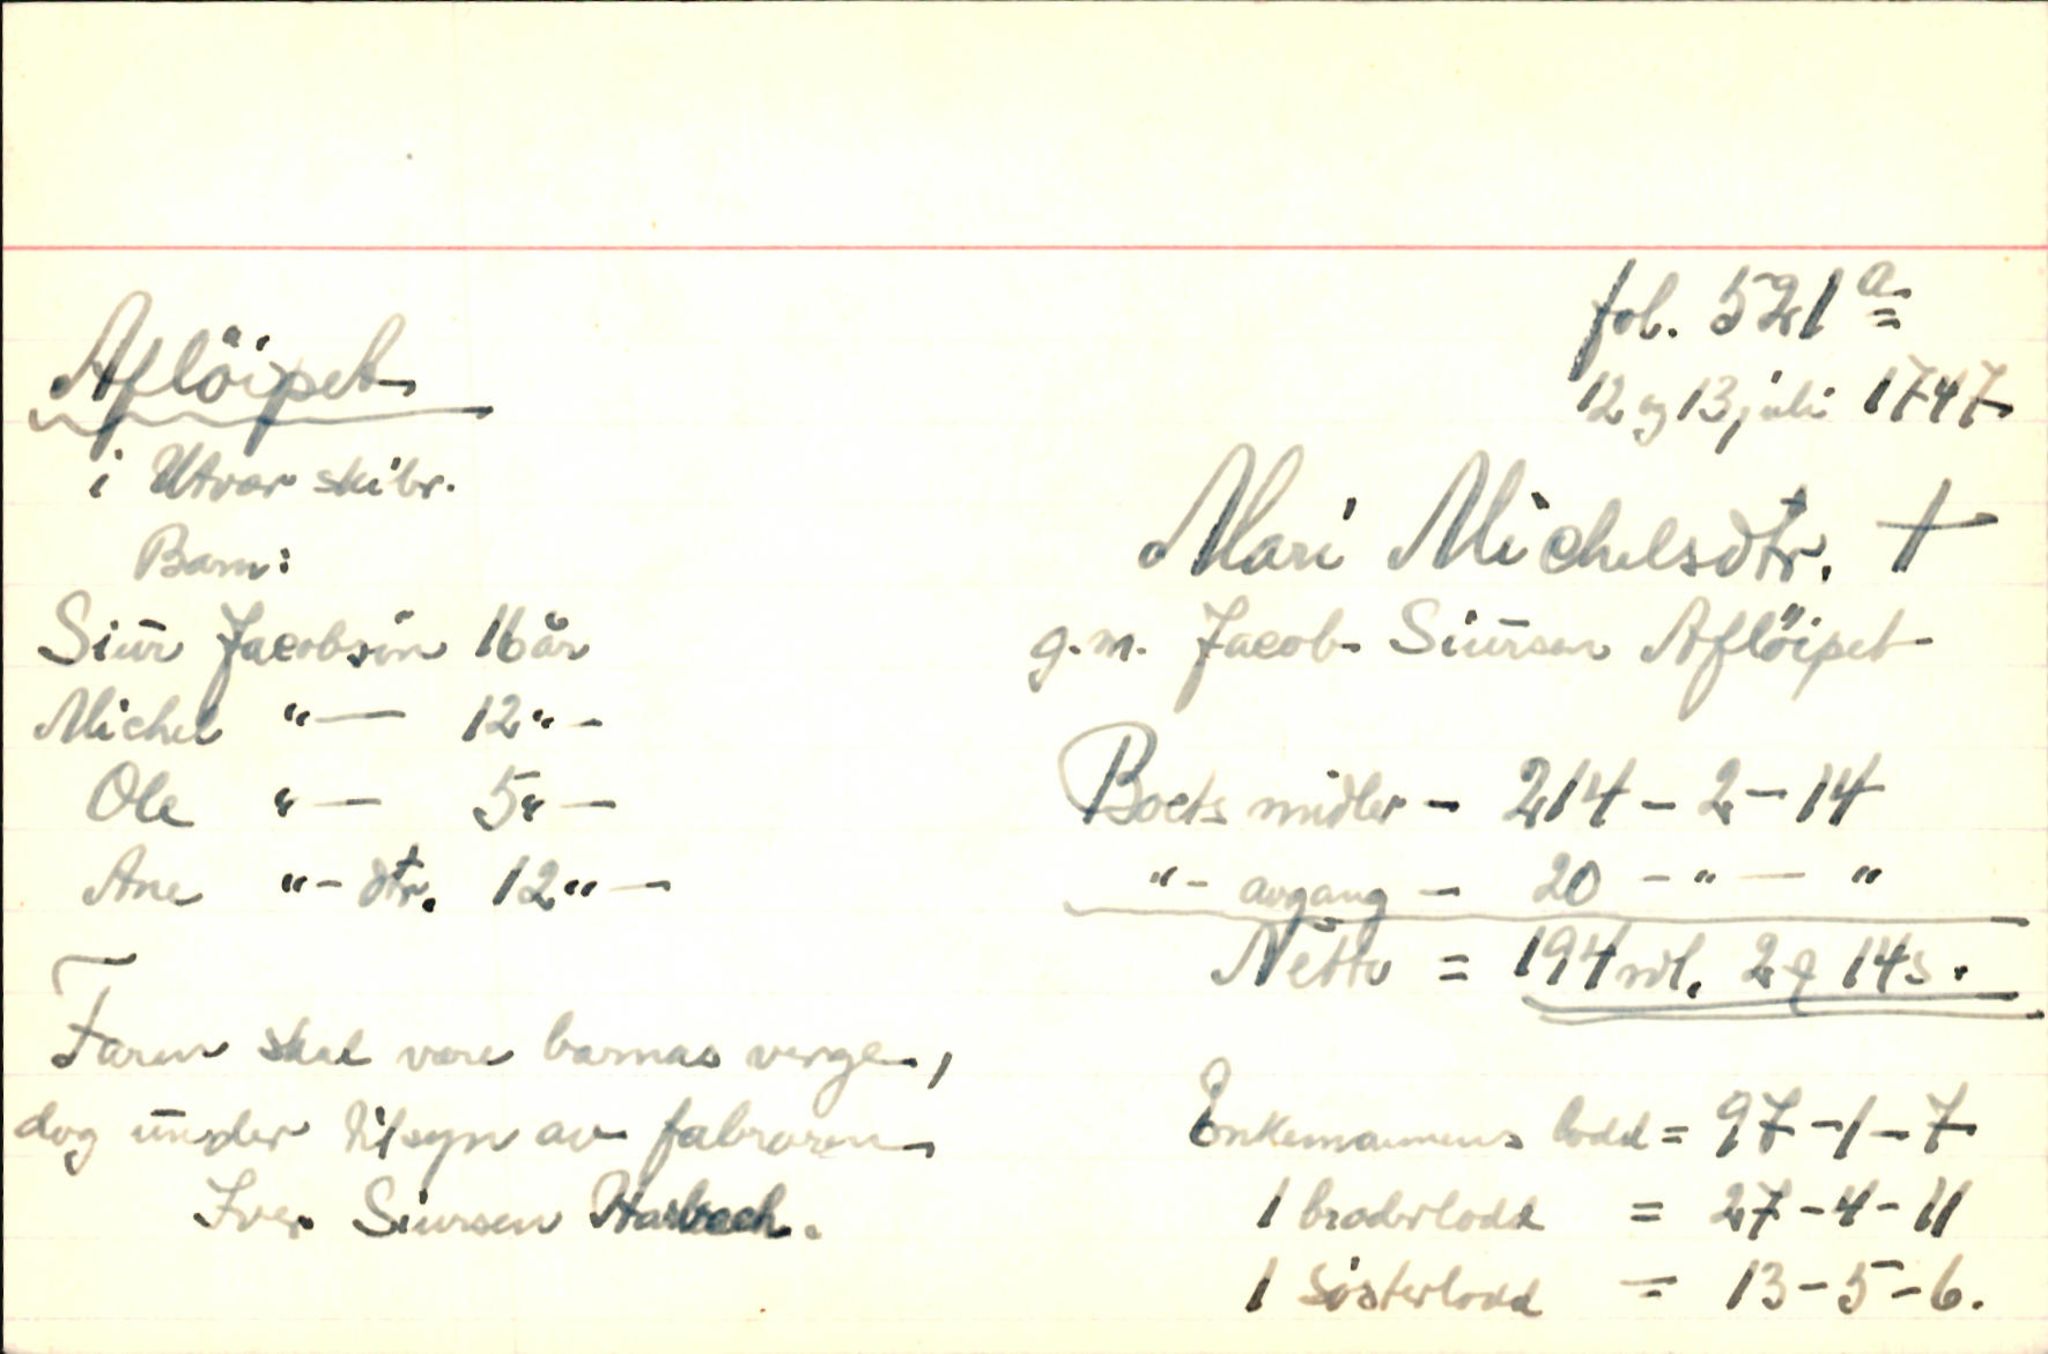 Aflöipet
i Utvær skibr.
Barn:
Siūr Jacobsön 16 år
Michel "— 12 "—
Ole "— 5 "—
Ane "— dtr. 12 "—
Faren skal være barnas verge,
dog ūnder tilsyn av farbroren
Iver Siursen Harbech.
fol. 521 a
12 og 13 juli 1747
Mari Michelsdtr. †
g.m. Jacob Siūrsen Aflöipet
Boets midler – 214 – 2 – 14
"– avgang – 20 – " — "
Netto = 194 rdl. 2 q 14 s.
Enkemannens lodd = 97 – 1 – 7
1 broderlodd = 27 – 4 – 11
1 sösterlodd = 13 – 5 – 6.